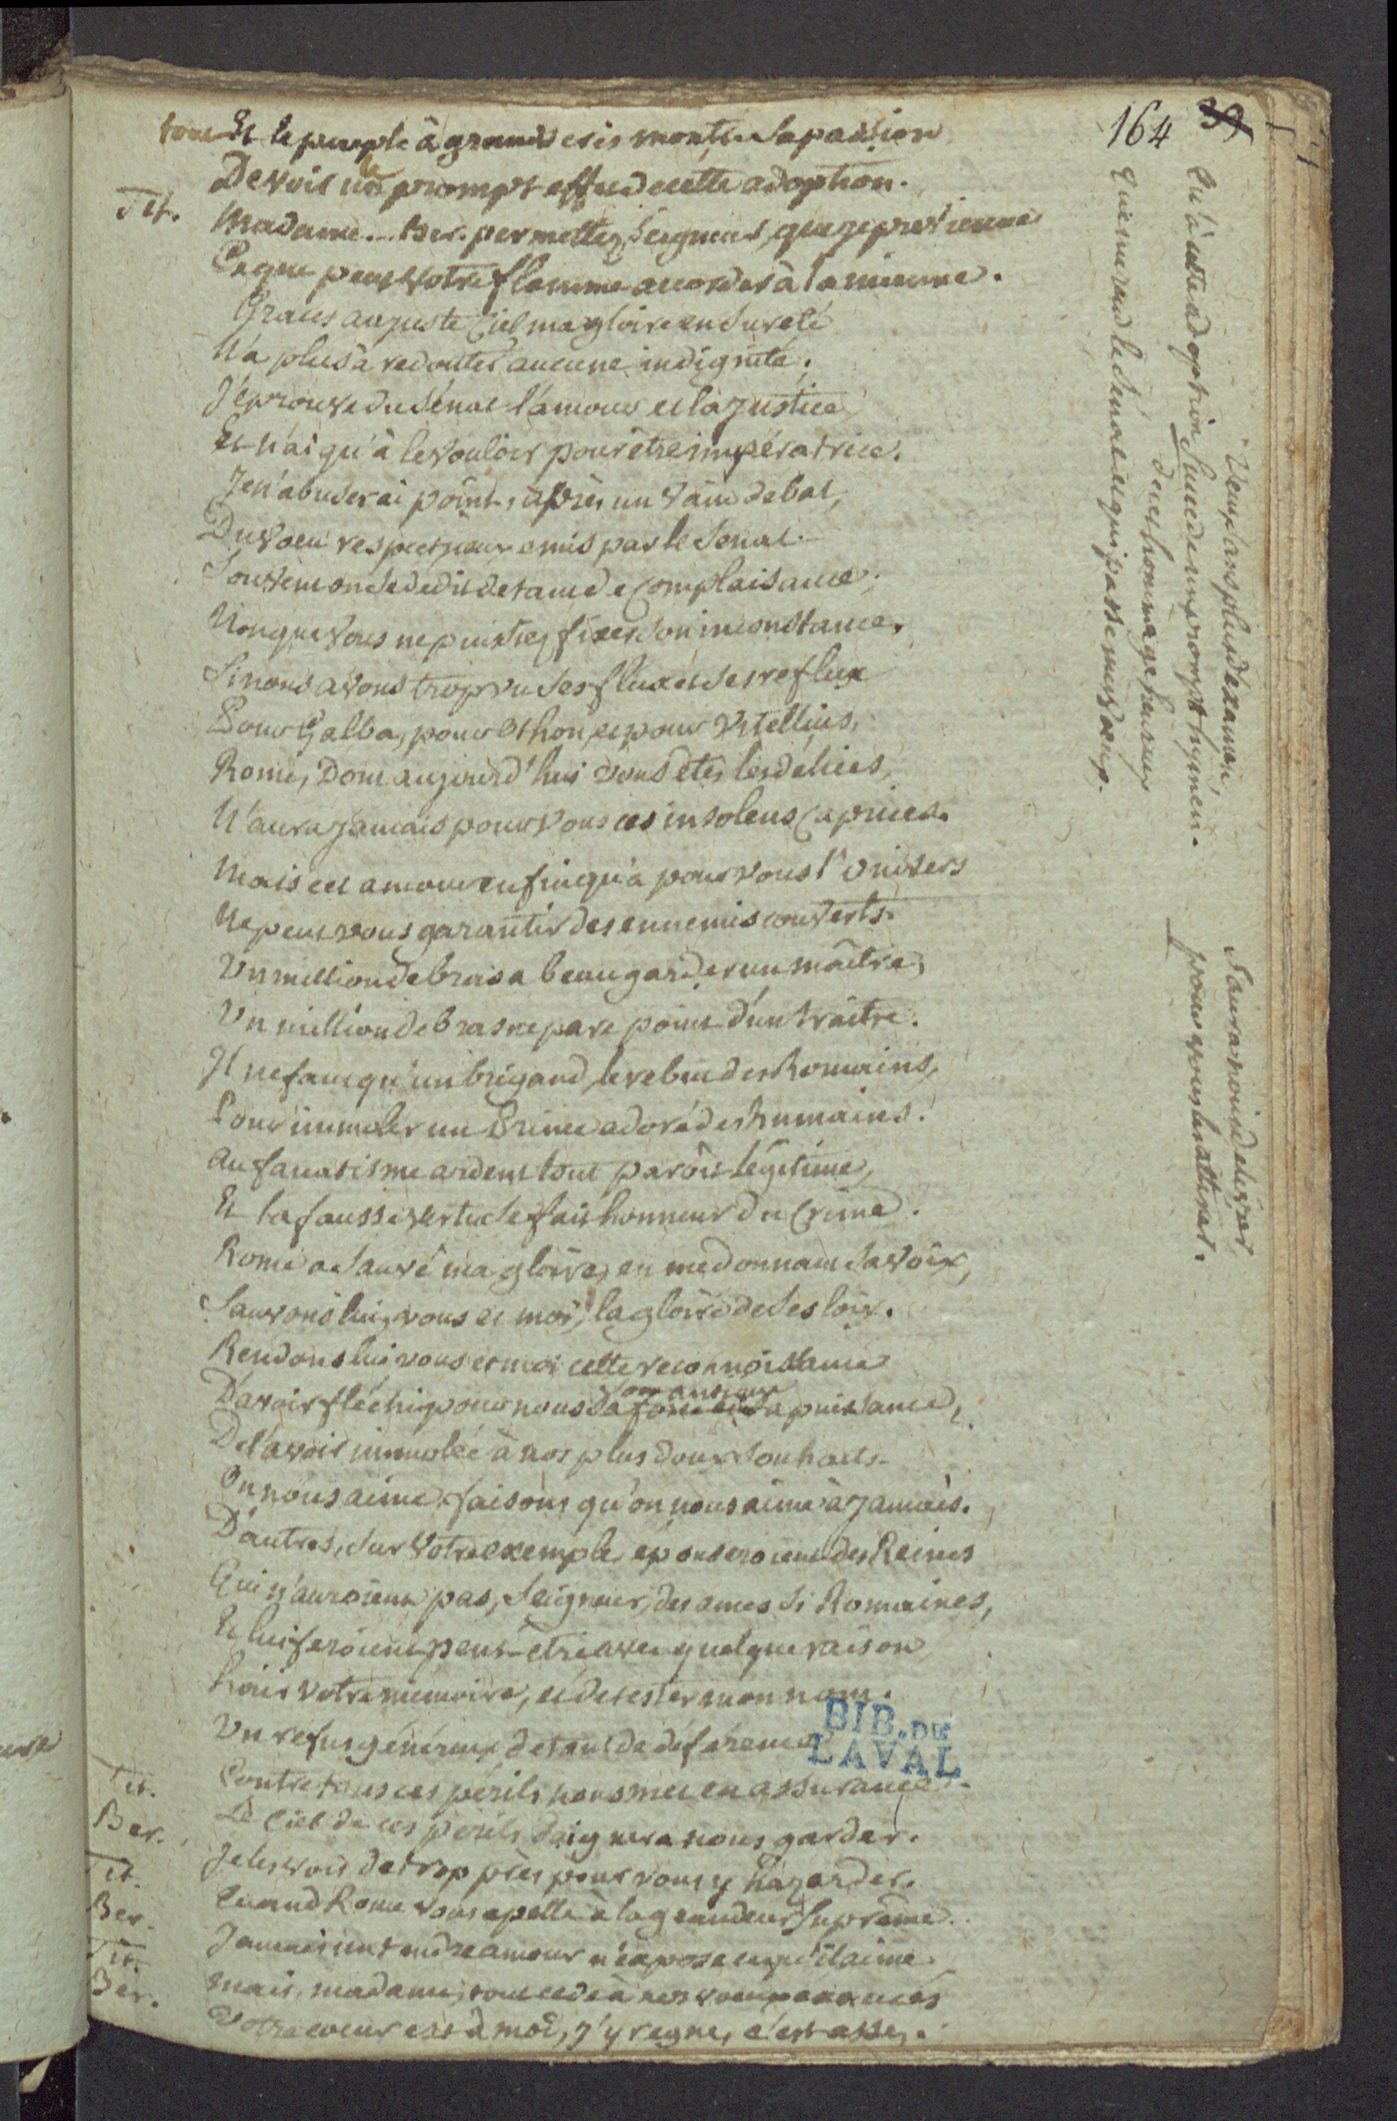 164 39
tout Et le peuple à grands cris montre sa passion
De voir un le prompt effet de cette adoption.
Tit. Madame.... Ber. permettez, Seigneur, que je previenne
Ce que peut votre flamme accorder à la mienne.
Graces au juste Ciel ma gloire en sureté
N'a plus à redouter aucune indignité.
J'éprouve du Sénat l'amour et la justice
Et n'ai qu'à le vouloir pour être impératrice.
Je n'abuserai point, après un vain debat,
Du voeu respectueux émis par le Senat.
Souvent on se dedit de tant de complaisance,
Non que vous ne puissiez fixer son inconstance,
Si nous avons trop vu ses flux et ses reflux
Pour Galba, pour Othon, et pour Vitellius,
Rome, dont aujourd'hui vous êtes les délices,
N'aura jamais pour vous ces insolens caprices.
Mais cet amour enfin qu'a pour vous l'Univers
Ne peut vous garantir des ennemis couverts.
Un million de bras a beau garder un maître,
Un million de bras ne pare point d'un traître.
Il ne faut qu'un brigand, le rebut des Romains,
Pour immoler un Prince adoré des humains.
Au fanatisme ardent tout paroît légitime,
Et la fausse vertu se fait honneur du crime.
Rome a sauvé ma gloire, en me donnant sa voix,
Sauvons lui, vous et moi, la gloire de ses loix.
Rendons lui vous et moi cette reconnoissance
D'avoir fléchi pour nous sa puissance,
De l'avoir immolée à nos plus doux souhaits.
On nous aime, faisons qu'on nous aime à jamais.
D'autres, sur votre exemple, épouseroient des Reines
Qui n'auroient pas, Seigneur, des ames si Romaines,
Et lui feroient peut-être avec quelque raison
haïr votre mémoire, et detester mon nom.
Un refus généreux de tant de déférence
Contre tous ces périls nous met en assurance.
Tit. Le Ciel de ces périls daignera nous garder.
Ber. Je les vois de trop près pour vous y hazarder.
Tit. Quand Rome vous apelle à la grandeur suprême.
Ber. Jamais un tendre amour n'expose ce qu'il aime.
Tit. Mais, madame, tout cede à nos voeux exaucés
Ber. Votre coeur est à moi, j'y regne, c'est assez.
Qu'à cette adoption succede un prompt hyménée.
veut sans plus d'examen
de cet hommage heureux
que me rend le Sénat et qui passe mes voeux.
pour vous les attirer.
BIB. DE
LAVAL